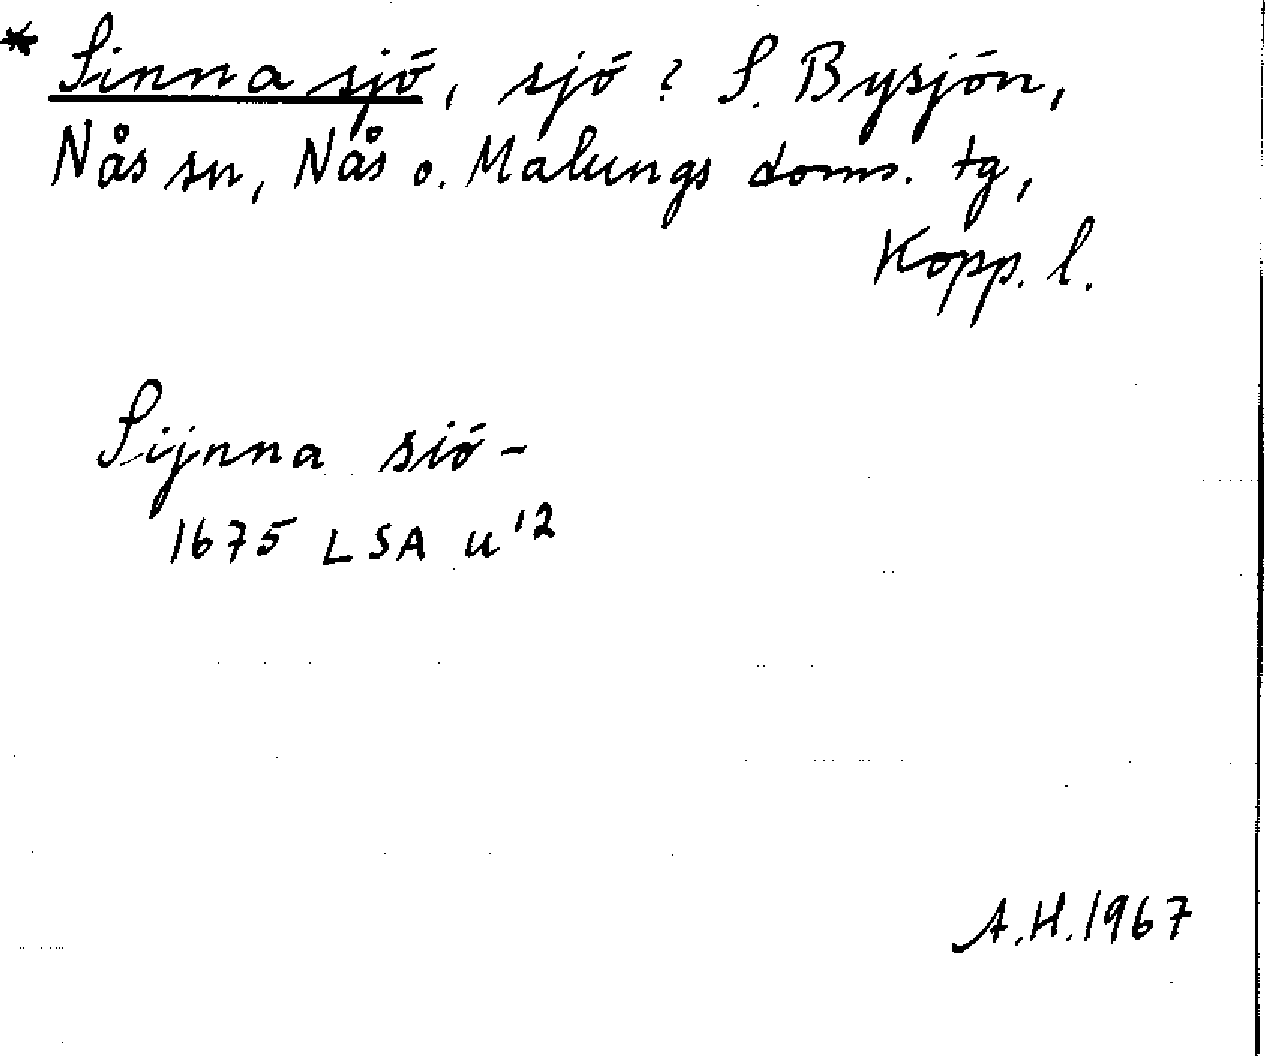 * Sinna sjö, sjö ? S. Bysjön,
Nås sn, Nås o. Malungs doms. tg,
Kopp. l.
Sijnna siö-
1675 LSA u'2
A.H.1967